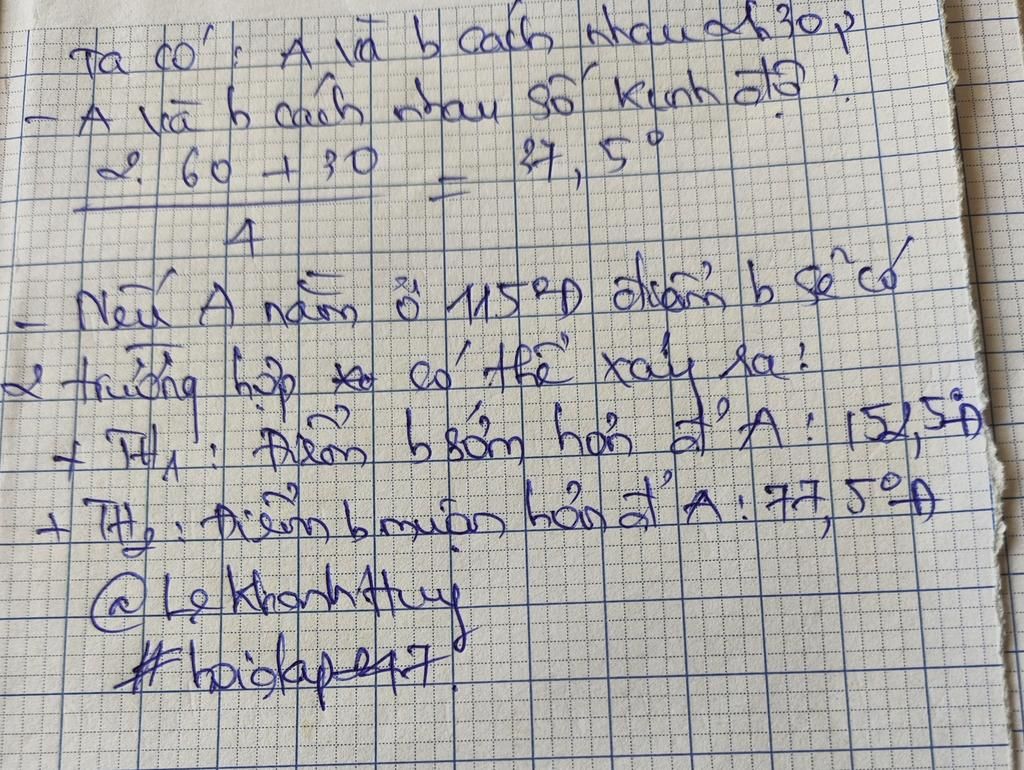 Ta có: A và b cách nhau 2h30p
- A và b cách nhau số kinh độ:
2.60 + 30 = 37,5°
4
- Nếu A nằm ở 115°Đ điểm b sẽ có
2 trường hợp có thể xảy ra:
+ TH1: Điểm b sớm hơn đ' A: 152,5°Đ
+ TH2: Điểm b muộn hơn đ' A: 77,5°Đ
@LeKhanhHuy
#hoidap247